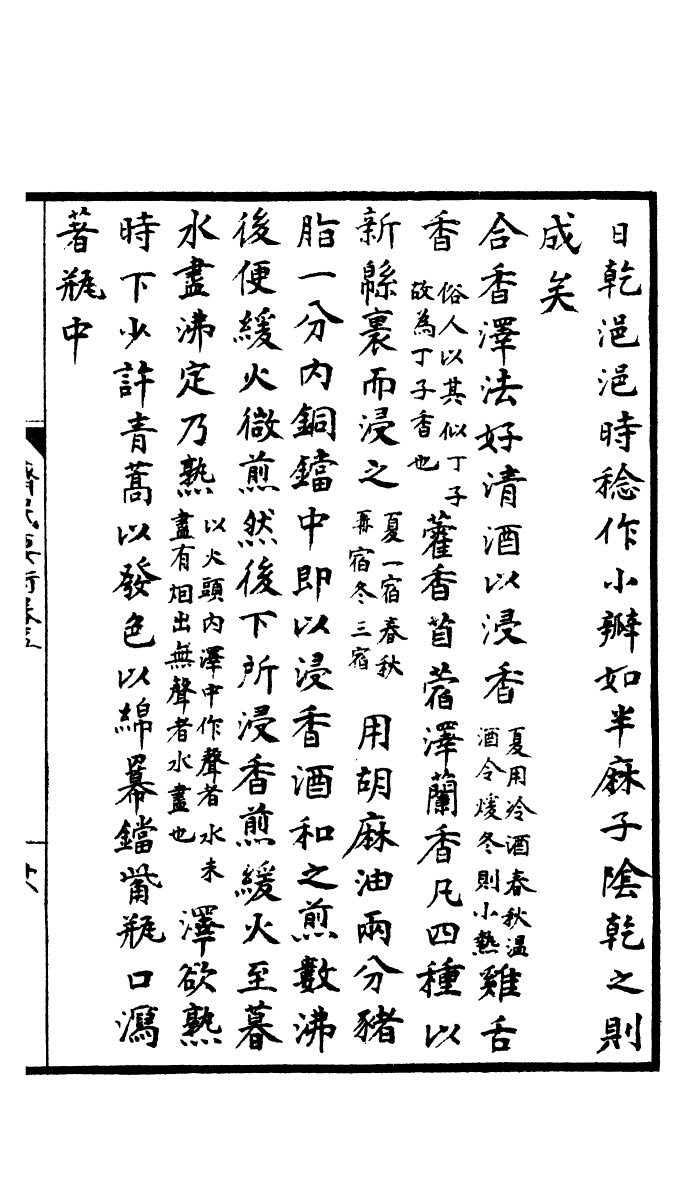 日乾浥浥時稔作小瓣如半麻子陰乾之則
成矣
合香澤法好清酒以浸香夏用冷酒春秋温酒令煖冬則小熱雞舌
香俗人以其似丁子故為丁子香也藿香苜蓿澤蘭香凡四種以
新緜裹而浸之夏一宿春秋再宿冬三宿用胡麻油兩分豬
脂一分内銅鐺中即以浸香酒和之煎數沸
後便緩火微煎然後下所浸香煎緩火至暮
水盡沸定乃熟以火頭内澤中作聲者水未盡有烟出無聲者水盡也澤欲熟
時下少許青蒿以發色以綿羃鐺觜瓶口瀉
著瓶中
齊民要術卷五